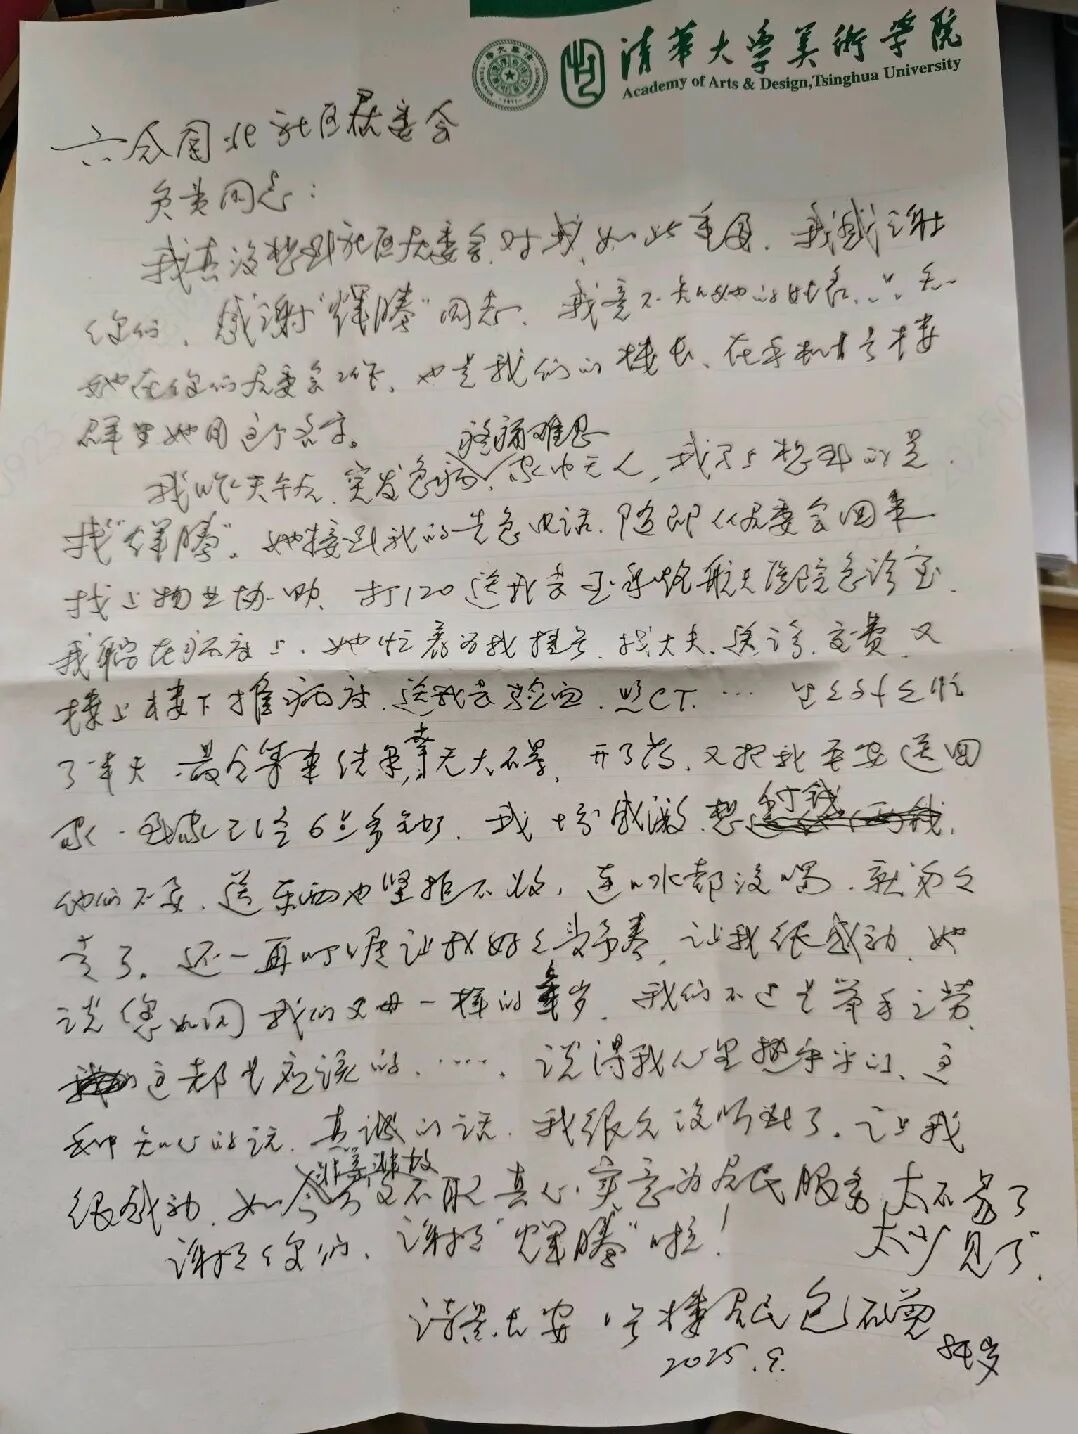 清华大学美術学院
Academy of Arts & Design, Tsinghua University
六合园北社区居委会
负责同志：
我真没想到社区居委会对我如此重视，我感谢
你们，感谢"辉腾"同志，我竟不知她的姓名，只知
她在你们居委会工作，也是我们的楼长，在手机1号楼
群里她用这个名字。
我昨天午后，突发急病，疼痛难忍，家中无人，我马上想到的是
找"辉腾"。她接到我的告急电话，随即从居委会回来
找上物业协助，打120送我去玉泉路航天医院急诊室，
我躺在病床上，她忙着为我挂号、找大夫、送诊、交费，又
楼上楼下推病床，送我去验血、照CT……
了半天，最令结果幸无大碍，开了药，又把我平安送回
家，到家已经6点多钟，我十分感激，想付钱，
他们不要，送东西也坚拒不收，连口水都没喝，就匆匆
走了。还一再叮嘱让我好好养，让我很感动，她
说(您如同)我们父母一样的年岁，我们不过是举手之劳，
这都是应该的，……，说得我心里热乎乎的，这
种知心的话，真诚的话，我很久没听到了。让我
很感动，如今非亲非故又不配真心实意为居民服务，太不易了
太少见了。
谢谢你们，谢谢"辉腾"啦！
请安 1号楼居民包 84岁
2025.9.